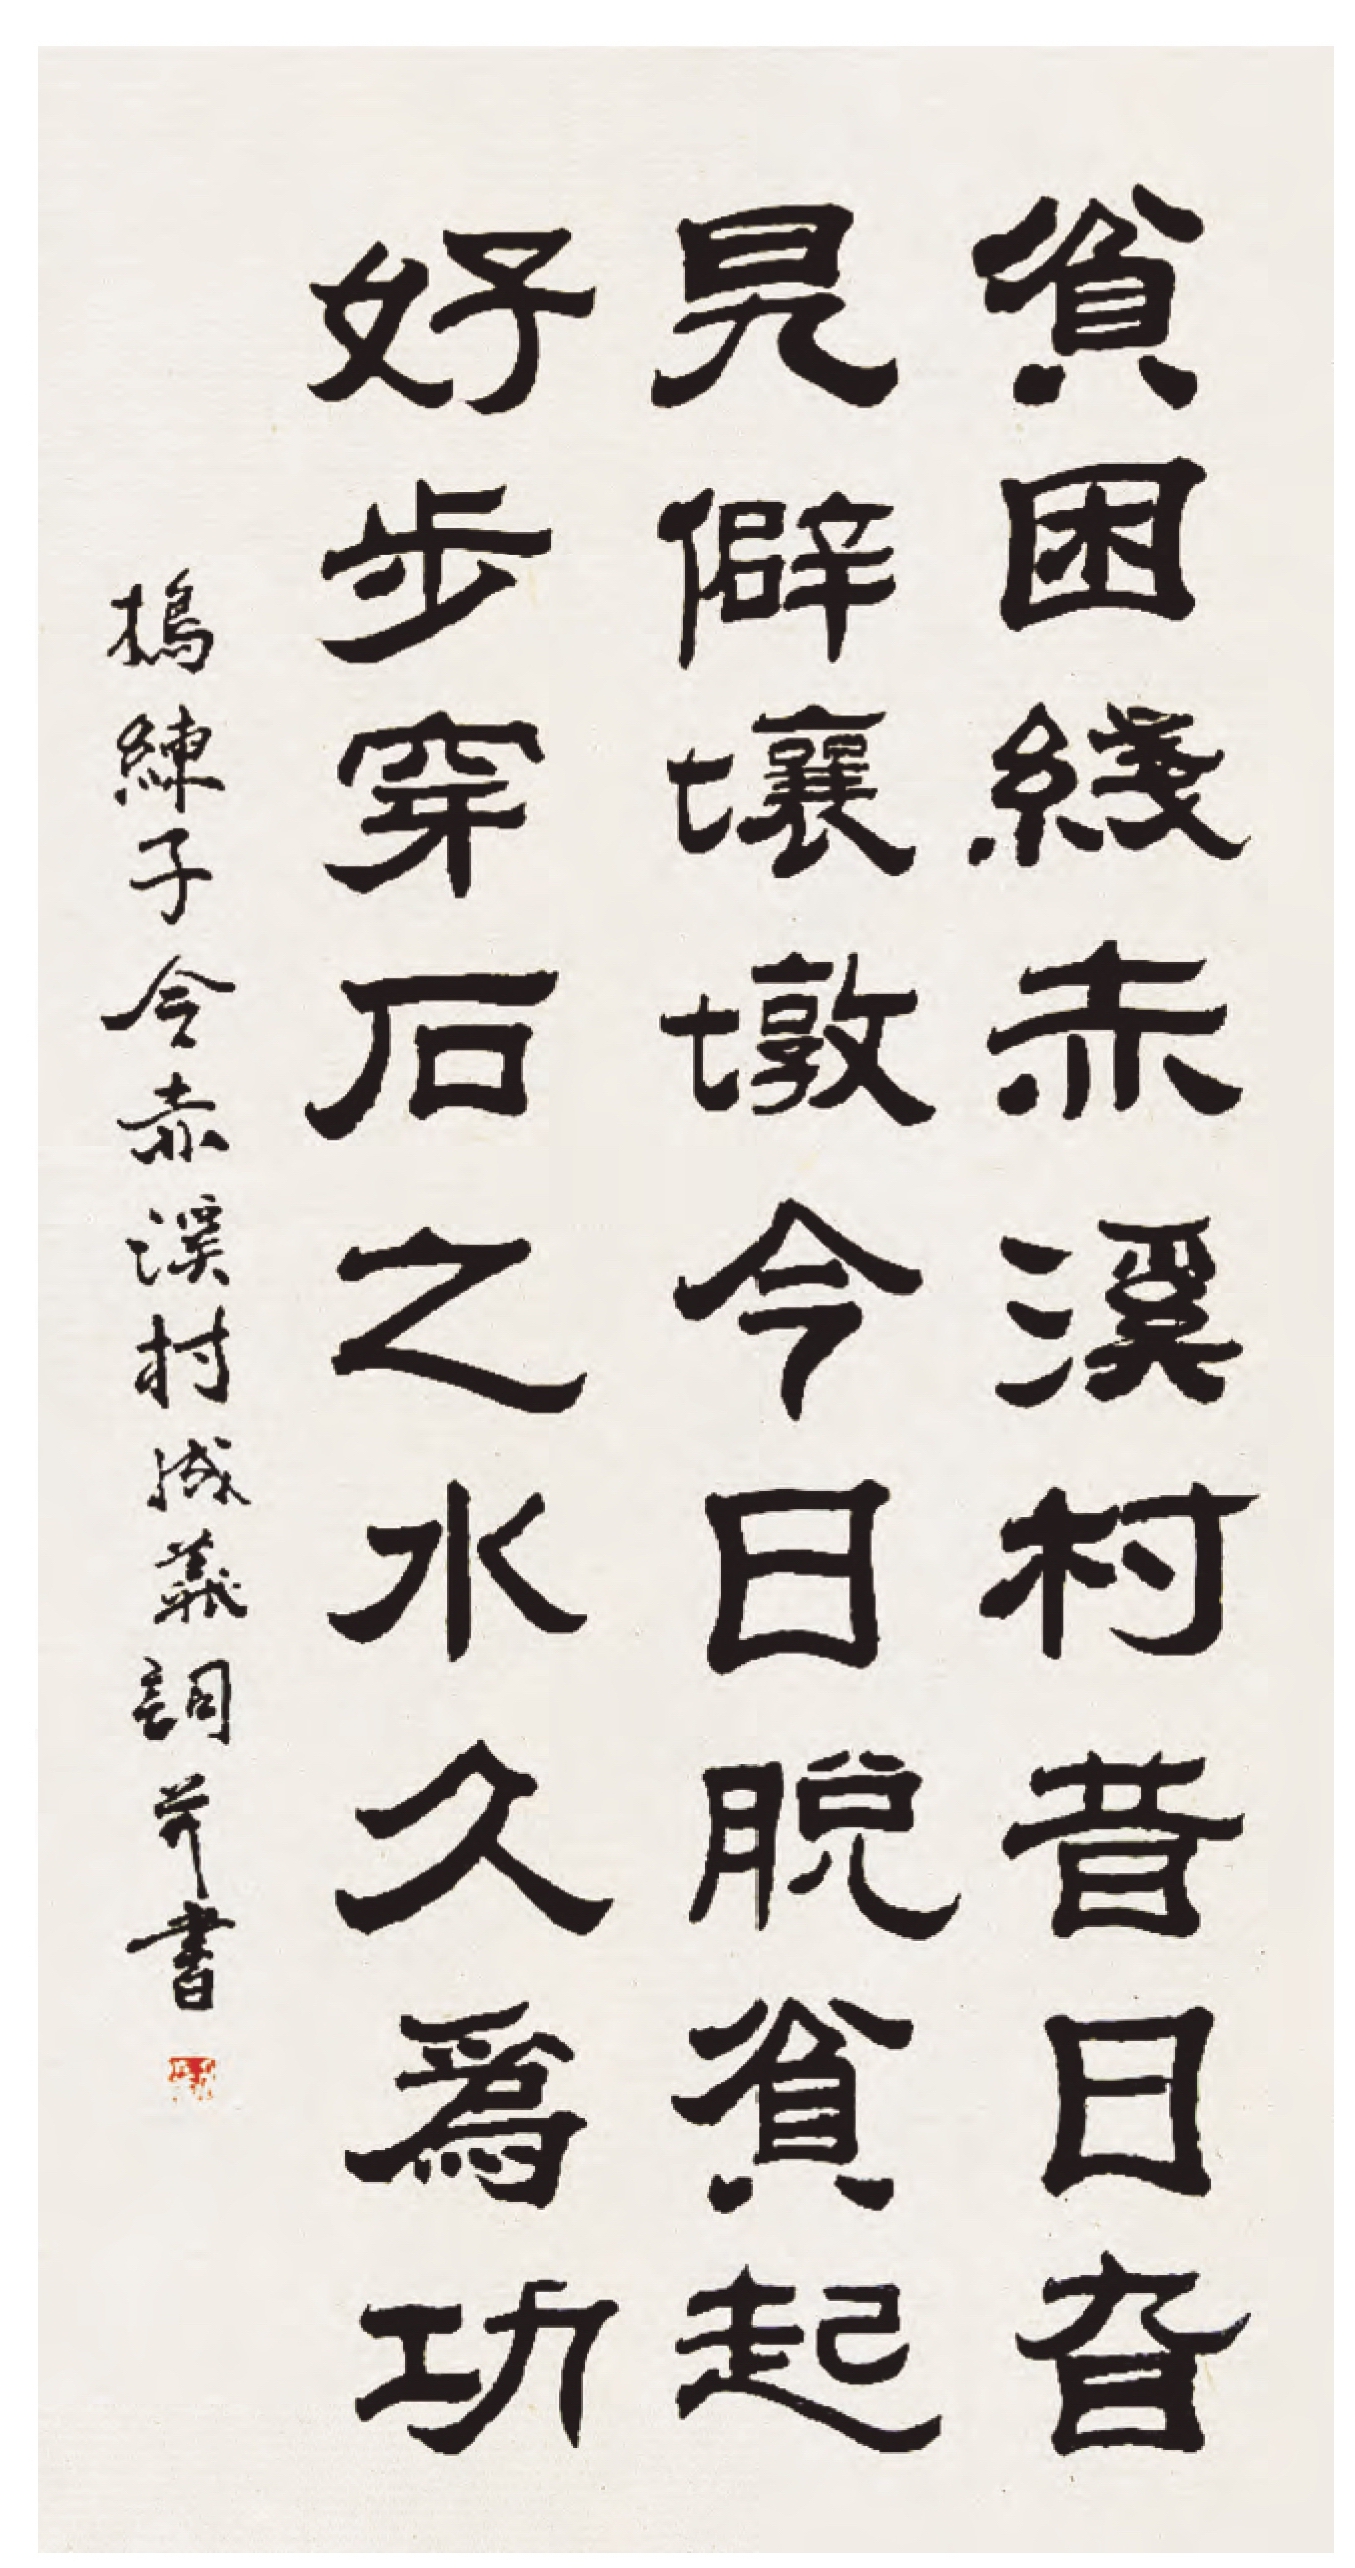 貧困綫赤溪村昔日旮
旯僻壤墩今日脱貧起
好步穿石之水久爲功
搗練子令赤溪村義詞書